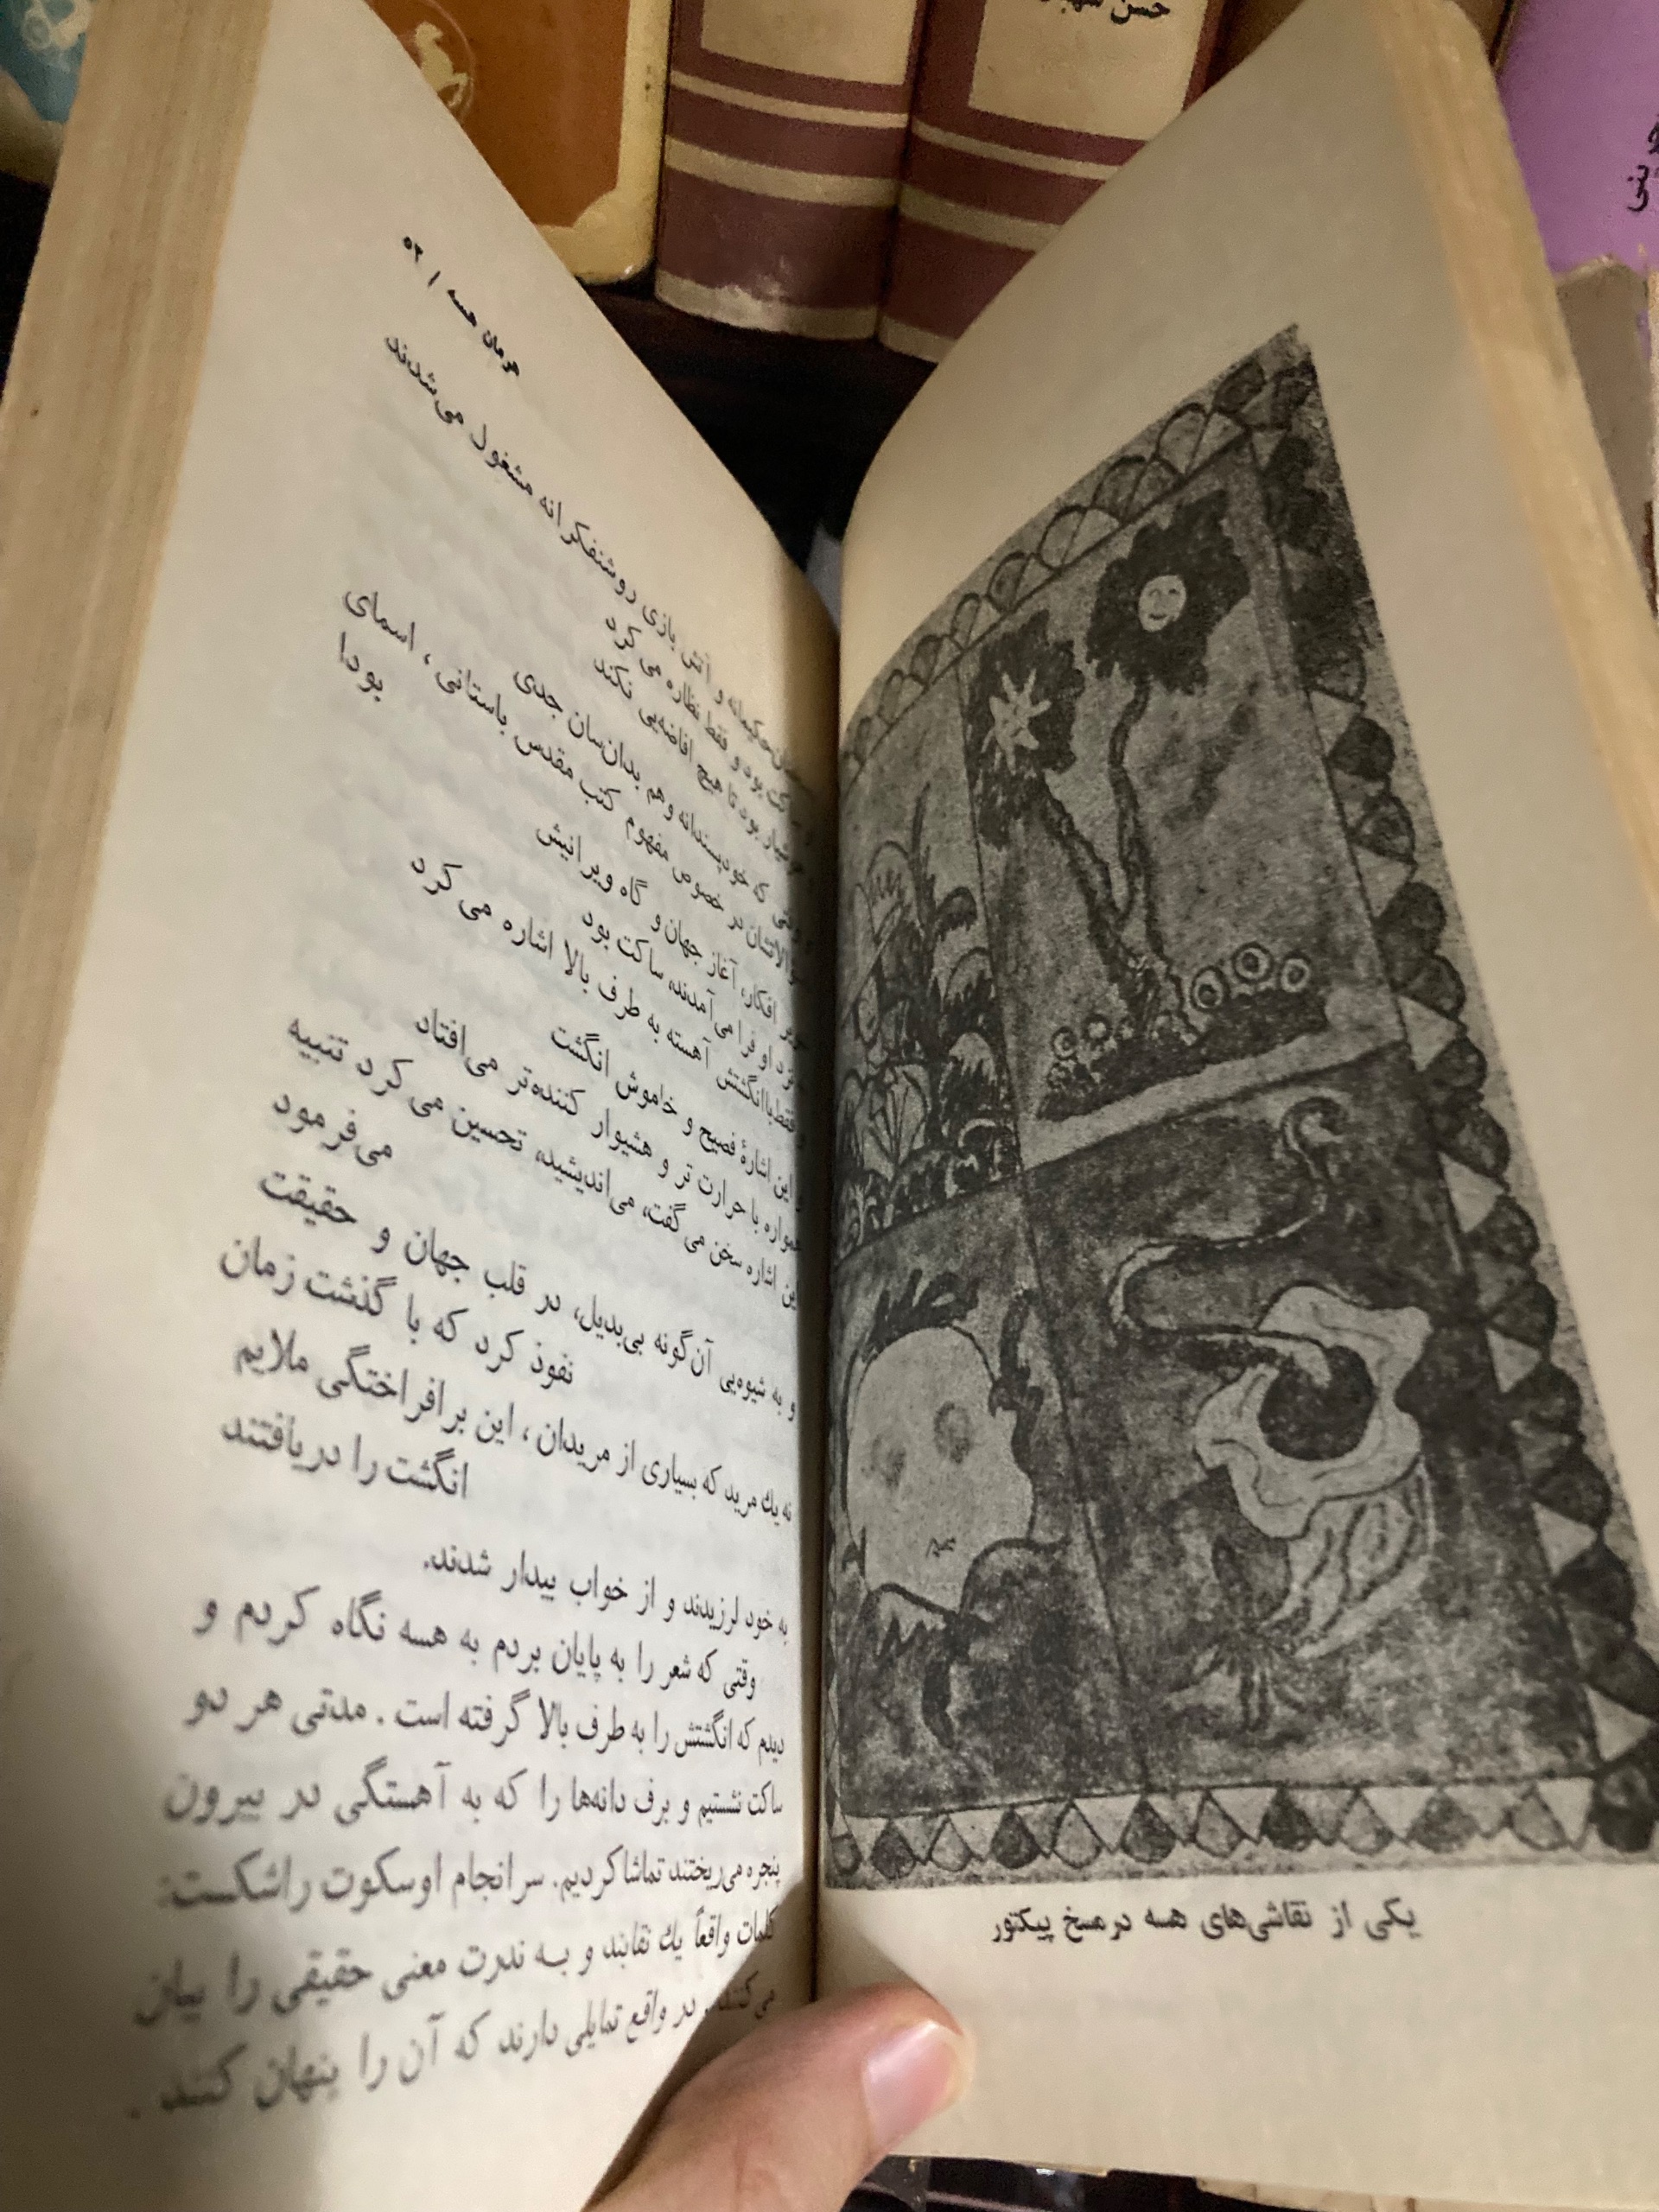 حسن
هرمان هسه / ۳۵
حکیمانه و آتش بازی روشنفکرانه مشغول می‌شدند
ساکت بود و فقط نظاره می کرد
هوشیار بود تا هیچ افاضه‌یی نکند
که خودپسندانه و هم بدان‌سان جدی
سوآلاتشان در خصوص مفهوم کتب مقدس باستانی ، اسمای
بودا
افکار، آغاز جهان و گاه ویرانیش
نزد او فرا می‌آمدند، ساکت بود
و فقط با انگشتش آهسته به طرف بالا اشاره می کرد
و این اشارهٔ فصیح و خاموش انگشت
همواره با حرارت تر و هشیوار کننده‌تر می‌افتاد
این اشاره سخن می گفت، می‌اندیشید، تحسین می کرد تنبیه
می‌فرمود
و به شیوه‌یی آن‌گونه بی‌بدیل، در قلب جهان و حقیقت
نفوذ کرد که با گذشت زمان
نه یك مرید که بسیاری از مریدان ، این برافراختگی ملایم
انگشت را دریافتند
به خود لرزیدند و از خواب بیدار شدند.
وقتی که شعر را به پایان بردم به هسه نگاه کردم و
دیدم که انگشتش را به طرف بالا گرفته است . مدتی هر دو
ساکت نشستیم و برف دانه‌ها را که به آهستگی در بیرون
پنجره می‌ریختند تماشا کردیم. سرانجام او سکوت راشکست:
کلمات واقعاً یك نقابند و بـه ندرت معنی حقیقی را بیان
می‌کنند. در واقع تمایلی دارند که آن را پنهان کنند .
یکی از نقاشی‌های هسه درمسخ پیکتور